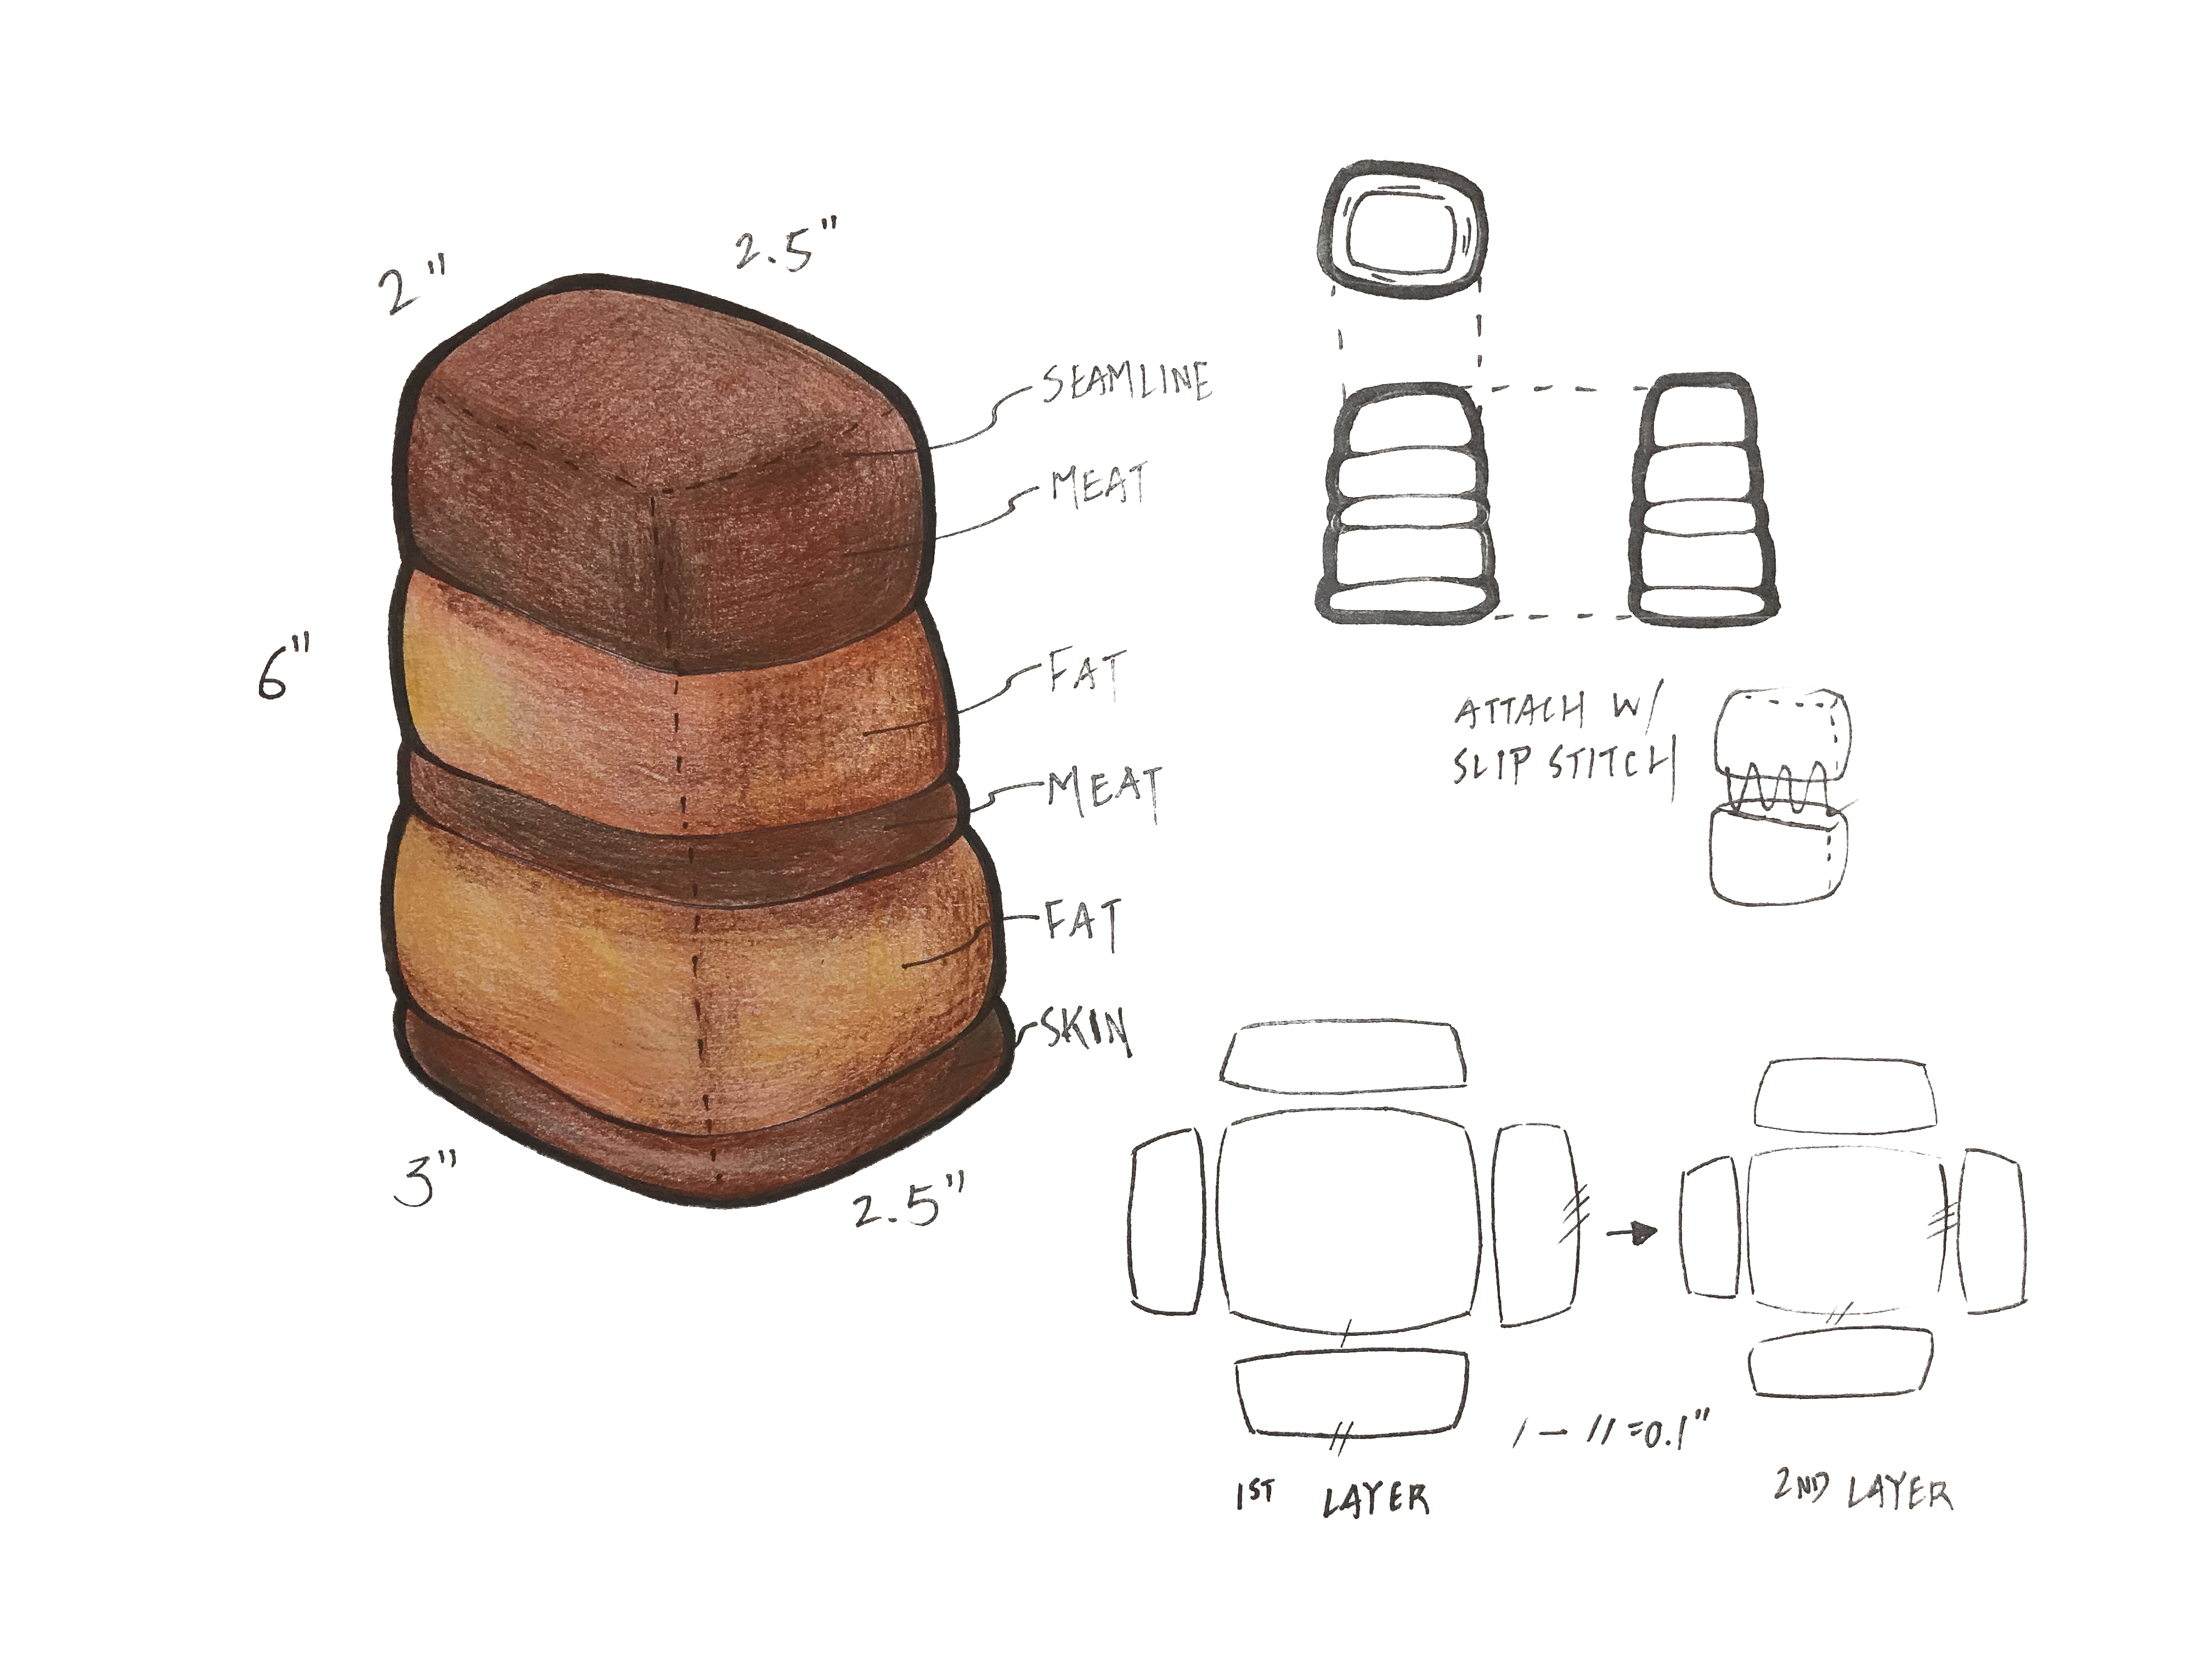 2"
2.5"
SEAMLINE
MEAT
FAT
6"
MEAT
FAT
SKIN
3"
2.5"
ATTACH W/
SLIP STITCH
/ — // = 0.1"
1ST LAYER
2ND LAYER